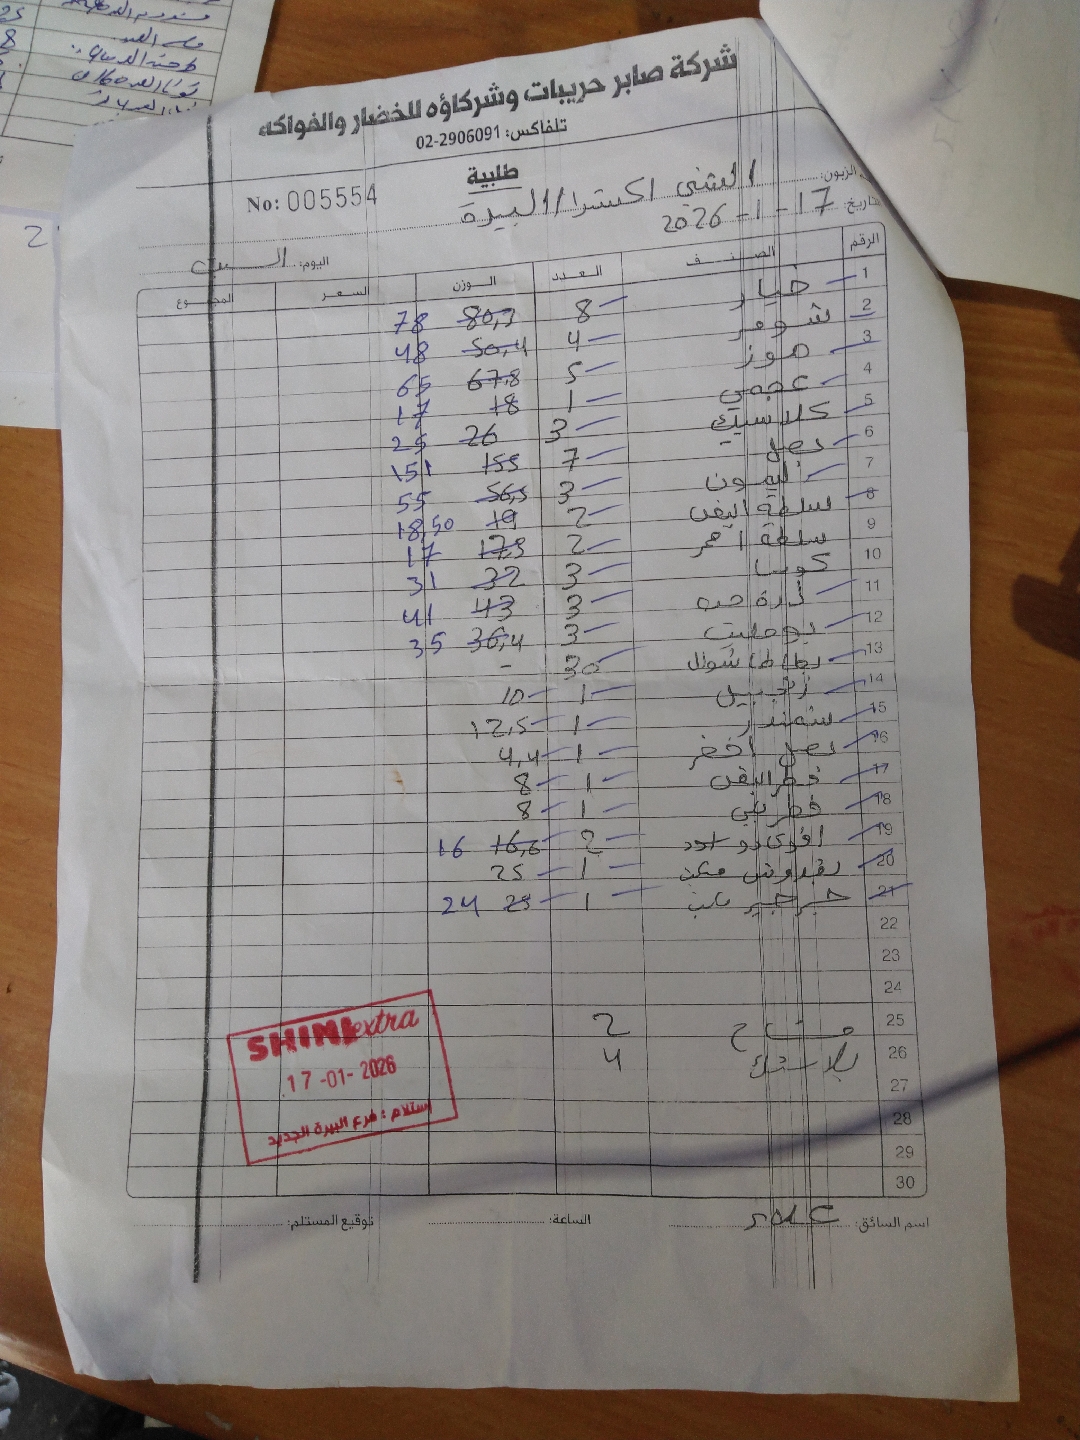 شركة صابر حريبات وشركاؤه للخضار والفواكه
تلفاكس: 02-2906091
طلبية
No: 005554
الزبون: الشني اكسترا/البيرة
تاريخ: 17-1-2026
اليوم: السبت
الرقم الصنف العدد الوزن السعر المجموع
1 خيار 8 80,3 78
2 شومر 4 50,4 48
3 موز 5 67,8 65
4 عجمي 1 18 17
5 كلاسيك 3 26 25
6 بصل 7 155 151
7 ليمون 3 56,5 55
8 سلطة ابيض 2 19 18,50
9 سلطة احمر 2 17,5 17
10 كوسا 3 32 31
11 ذرة حب 3 43 41
12 بوملي 3 36,4 35
13 بطاطا شوال 30 -
14 زنجبيل 1 10
15 شمندر 1 12,5
16 بصل اخضر 1 4,4
17 فطر ابيض 1 8
18 فطر بني 1 8
19 افوكادو اسود 2 16,6 16
20 بقدونس 1 25
21 جرجير 1 25 24
22
23
24
25 مشاح 2
26 بلاستيك 4
27
28
29
30
SHINI extra
17-01-2026
إستلام: فرع البيرة الجديد
اسم السائق: عامر الساعة: توقيع المستلم: